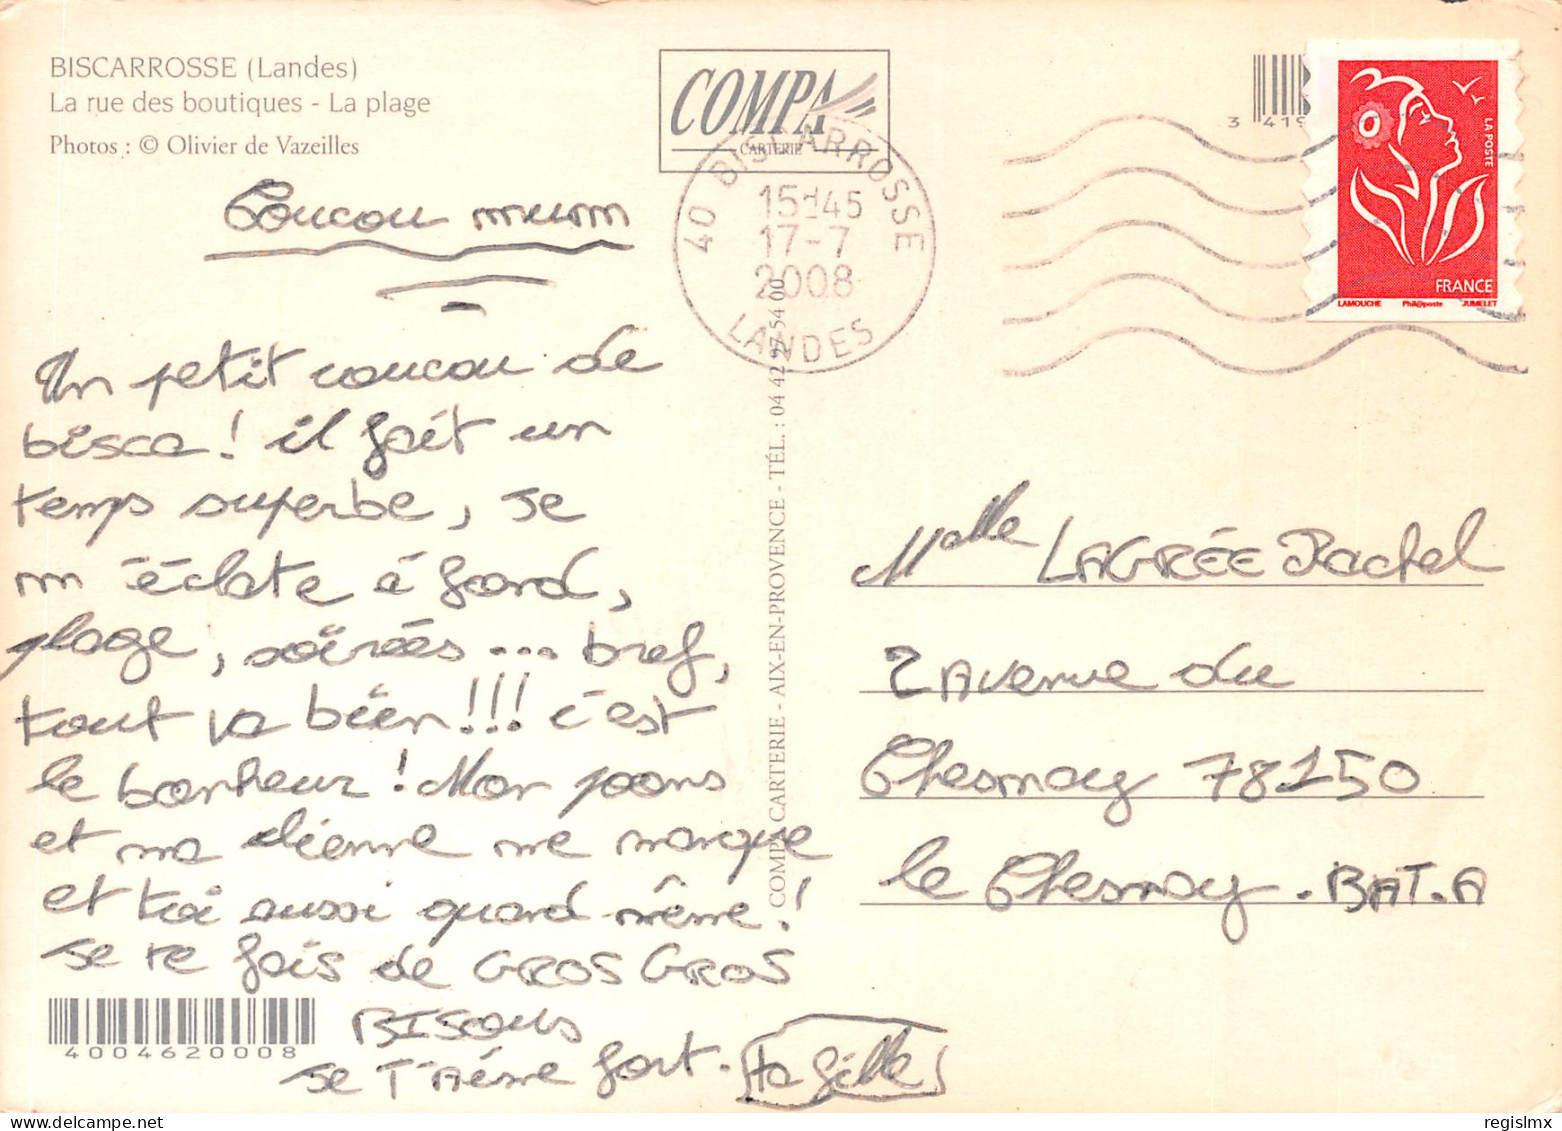 BISCARROSSE (Landes)
La rue des boutiques - La plage
Photos : © Olivier de Vazeilles
COMPA
CARTERIE
40 BISCARROSSE
15H45
17-7
2008
LANDES
3 419
LA POSTE
FRANCE
LAMOUCHE Phil@poste JUMELET
Coucou mum
Un petit coucou de
bisca! il fait un
temps superbe, je
m'éclate à fond,
plage, soirées... bref,
tout va bien!!! c'est
le bonheur! Mon poons
et ma chienne me manque
et toi aussi quand même!
je te fais de GROS GROS
BISOUS
je T'Aime fort. ta fille
COMPA CARTERIE - AIX-EN-PROVENCE - TÉL. : 04 42 27 54 00
Melle LAGRÉE Rachel
2 Avenue du
Chesnay 78150
le Chesnay. BAT. A
4004620008
regislmx